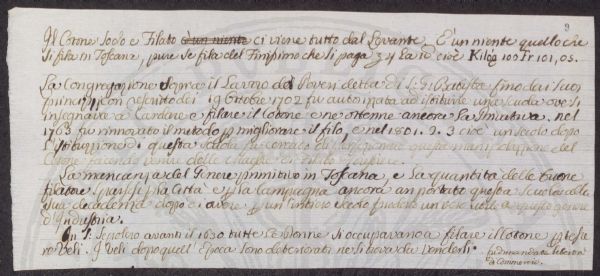 9
Il Cotone sodo e Filato è un niente ci viene tutto dal Levante. E' un niente quello che
si fila in Toscana, pure se fila del Finissimo che si paga 34 la cioè Kilog 100 fr 101,05.
La Congregazione sopra il Lavoro de Poveri detta di S. G. Batista fino dai suoi
principj con rescritto dei 19 Ottobre 1702 fu autorizzata ad istituire una scuola ove si
insegnasse a Cardare e filare il Cotone e ne ottenne ancora la privativa, nel
1763 fu rinnovato il metodo p migliorare il filo, e nel 1801. 2. 3 cioè un secolo dopo
l'Istituzione di questa scuola fu cercato di perfezionare questa manifattura del
Cotone facendo venire delle
La mancanza del Genere primitivo in Toscana, e la quantità delle buone
filatore sparse p la Città e p la Campagna ancora an portato questa scuola alla
sua decadenza doppo d'avere p un' intiero secolo prodotto un bene reale a questo genere
d'Industria.
In S. Sepolcro avanti il 1630 tutte le Donne si occupavano a filare il Cotone p tesse
re Veli. I Veli dopo quell' Epoca sono deteriorati ne si trova da Venderli.
fu dimandata libertà
di Commercio.